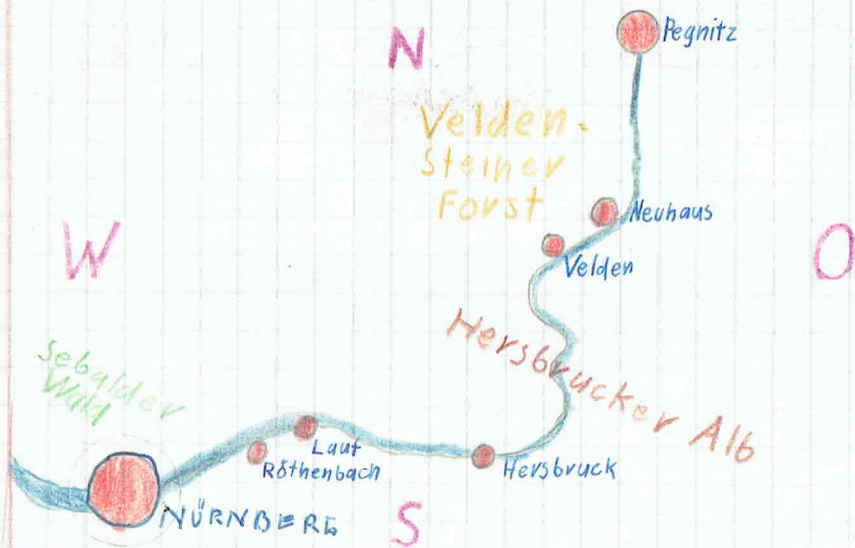 N
Pegnitz
Velden-
Steiner
Forst
Neuhaus
W
O
Velden
Hersbrucker Alb
Sebalder
Wald
Lauf
Röthenbach
Hersbruck
NÜRNBERG
S